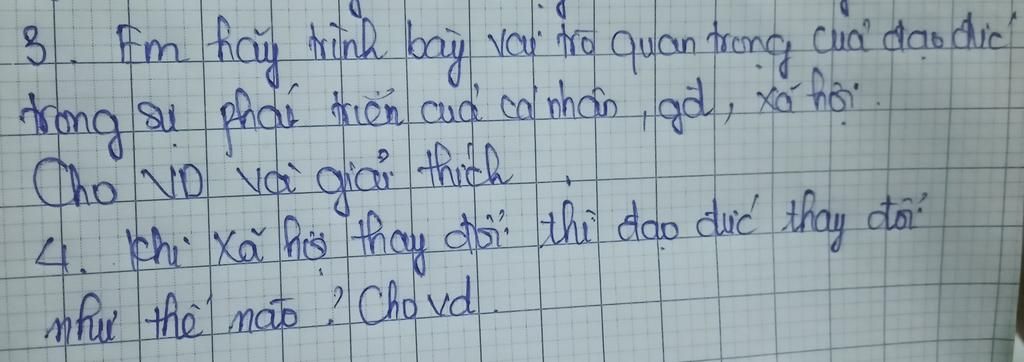 3. Em hãy trình bày vai trò quan trọng của đạo đức
trong sự phát triển của cá nhân, gđ, xã hội.
Cho VD và giải thích.
4. Khi xã hội thay đổi thì đạo đức thay đổi
như thế nào? Cho vd.